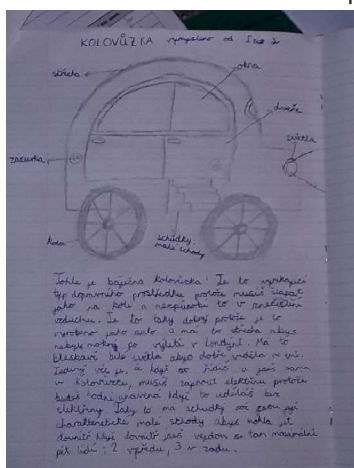 KOLOVŮZKA vymyšleno od
střecha
okna
dveře
světla
zásuvka
kolo
schůdky.
malé schody
Tohle je báječna kolovůzka! Je to vynikající
typ dopravního prostředku protože musíš šlapat
jako na kole a nezpůsobí to v znečištění
vzduchu. Je to taky dobrý protože je to
vyrobeno jako auto a má to střechu abys
nebyla mokrá po výletě v Londýně. Má to
bleskavý bílé světla abys dobře viděla ve
Jediný věc je, že když se řídíš a jseš sama
v kolovůzce, musíš zapnout elektřinu protože
budeš hodně unavená když to uděláš bez
elektřiny. Taky to má schůdky což jsou její
charakteristické malé schody abys mohla jít
dovnitř. Když dovnitř jseš vejdou se tam maximálně
pět lidí: 2 vpředu, 3 v zadu.